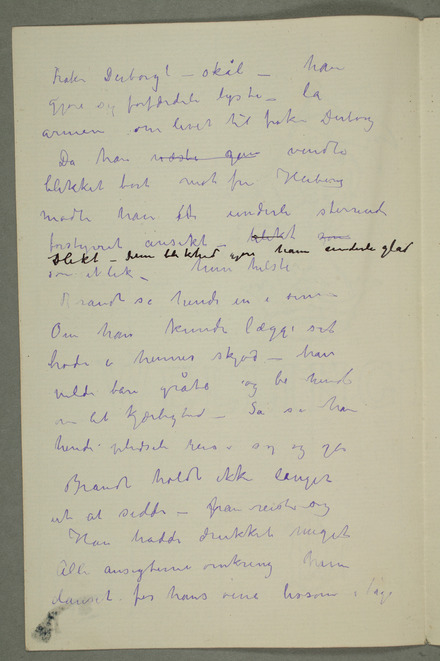 Frøken Duborg! – skål – han
gjore sig forfærdele lystig – la
armen om livet til frøken Duborg
Da han næste gan vendte
blikket bort mot fru Heiberg
mødte han et underli stirrende
forstyrret ansikt – blekt som
blekt – dem blekhed gjore ham underlig glad
som et lik – hun hilste
Brandt så hende in i øinene
Om han kunde lægge sit
hode i hennes skjød – han
vilde bare gråte og be hende
om lit kjærlighed – Så så han
hende pludseli reise sig og gå
Brandt holdt ikke længer
ut at sidde – han reiste sig
Han hadde drukket meget
Alle ansigterne omkring ham
danset for hans øine lissom i tåge